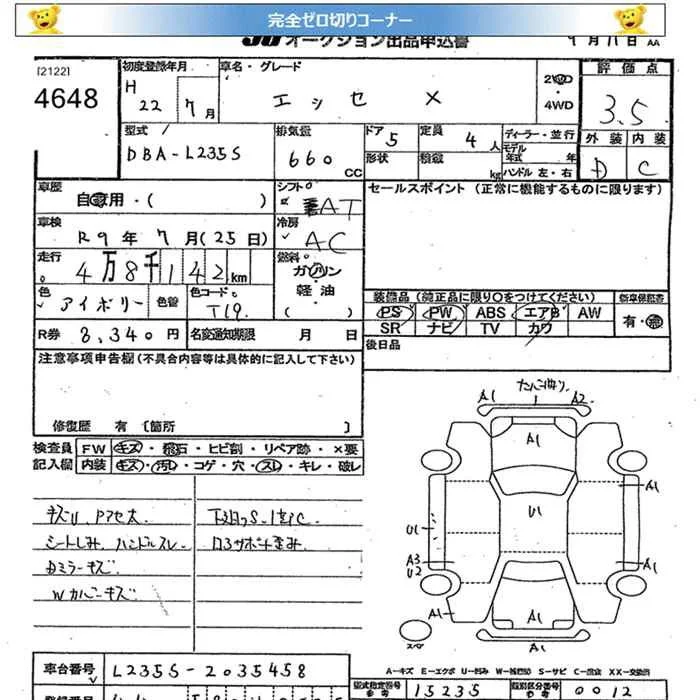 完全ゼロ切りコーナー
JU オークション出品申込書 9月11日 AA
[2122]
4648
初度登録年月 車名・グレード 評価点
H 22 7月 エッセ X 2WD・4WD 3.5
型式 排気量 ドア 定員 ディーラー・並行 外装 内装
DBA-L235S 660 CC 5 4人 モデル年式 年 D C
形状 積載 kg ハンドル 左・右
車歴 シフト セールスポイント(正常に機能するものに限ります)
自家用・( ) AT
車検 冷房
R9年7月(25日) AC
走行 燃料
4万8千142km ガソリン・軽油
色 色替 色コード 装備品(純正品に限り○をつけてください) 新車保証書
アイボリー T19 ( ) PS PW ABS エアB AW 有・無
SR ナビ TV カワ
R券 8,340円 名変通知期限 月 日 後日品
注意事項申告欄(不具合内容等は具体的に記入して下さい)
修復歴 有〔箇所 〕
検査員 FW キズ・飛石・ヒビ割・リペア跡・×要
記入欄 内装 キズ・汚レ・コゲ・穴・スレ・キレ・破レ
キズU、Pアセ大
シートしみ、ハンドルスレ ロアサポート歪み
Dミラーキズ
Wカバーキズ
A1 A2
A1
A1
U1 U1
A3
U2 A1
A1 A1
スペア A1
車台番号 L235S-2035458
A−キズ E−エクボ U−凹み W−補修跡 S−サビ C−腐食 XX−交換済
型式指定番号 参考 15235 類別区分番号 参考 0012
登録番号